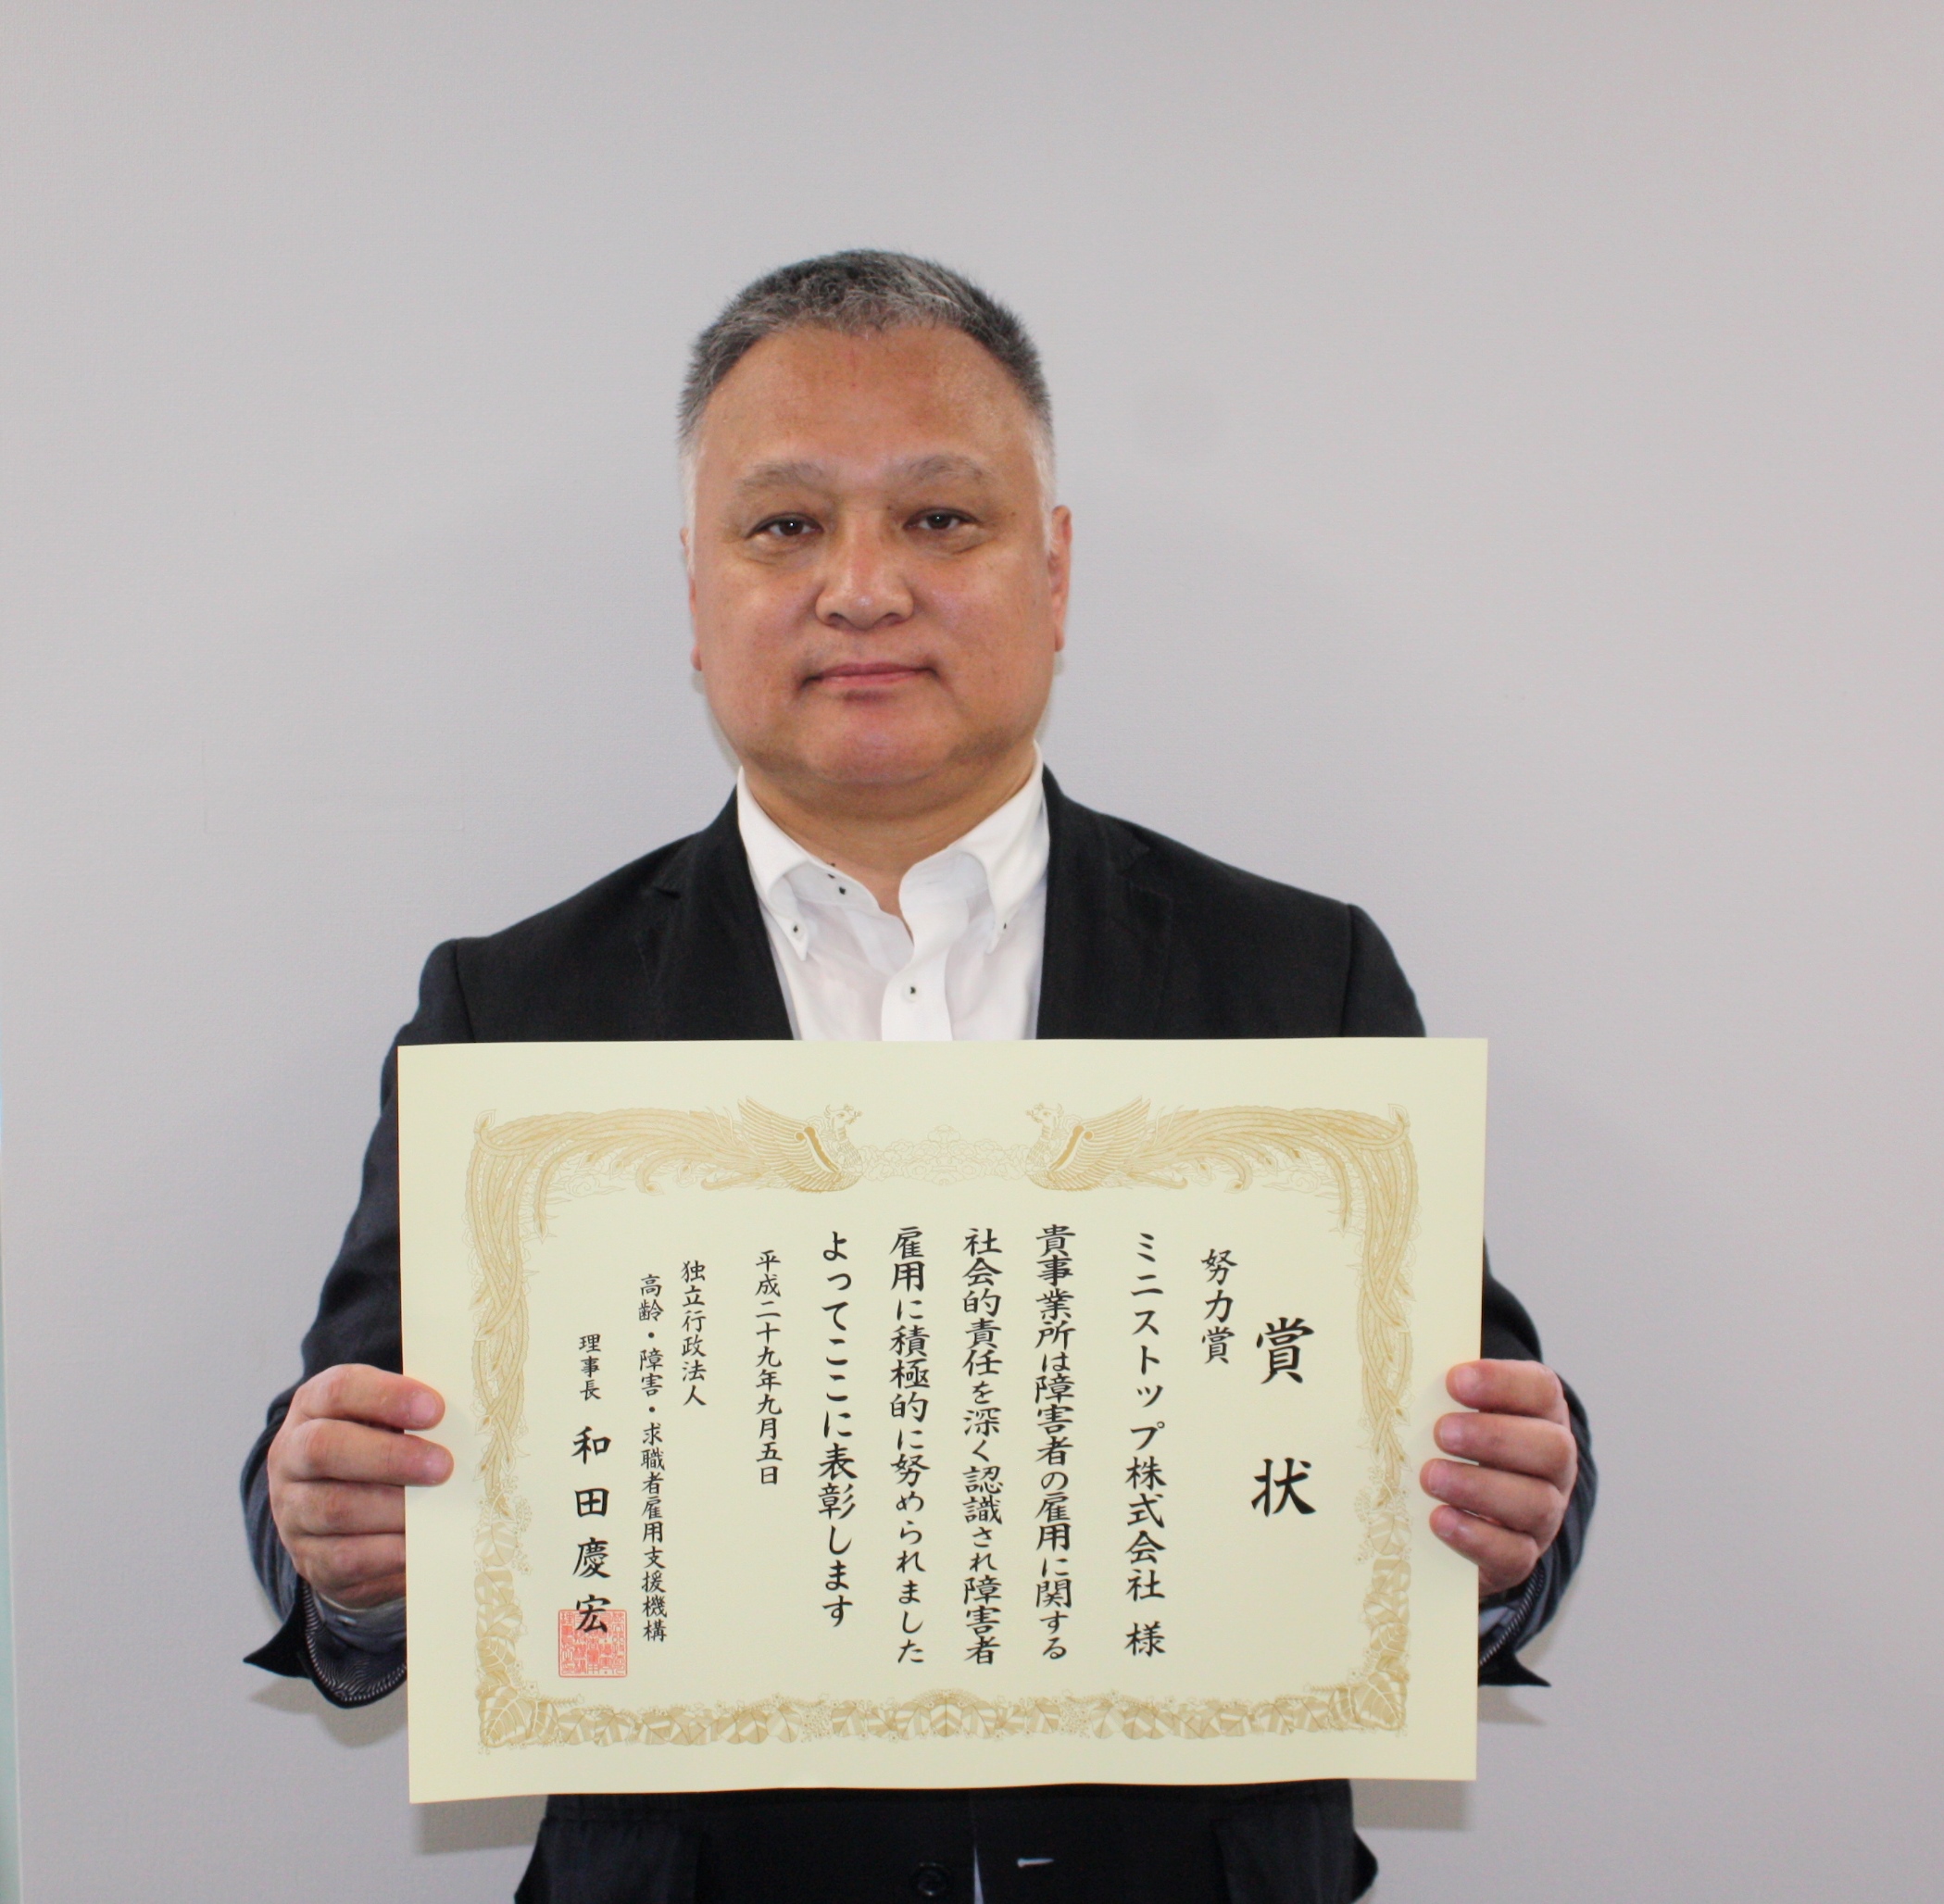 賞状
努力賞
ミニストップ株式会社 様
貴事業所は障害者の雇用に関する
社会的責任を深く認識され障害者
雇用に積極的に努められました
よってここに表彰します
平成二十九年九月五日
独立行政法人
高齢・障害・求職者雇用支援機構
理事長 和田慶宏